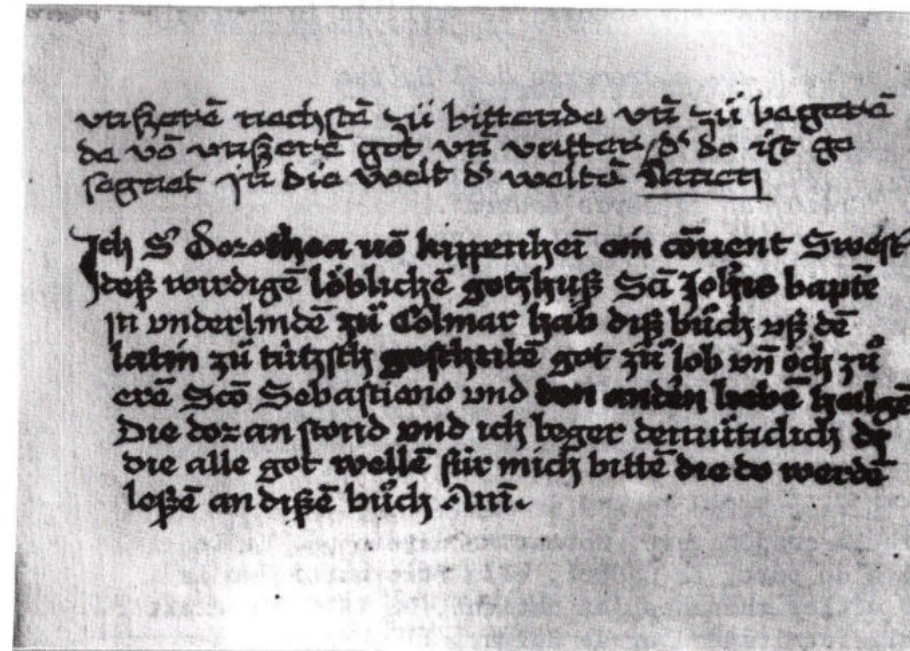 vnſzerē nechſtē zü bittende vn̄ zü begerē
de vō vnſzerē got vn̄ vatter / d' do iſt ge
ſegnet jn die welt d' weltē Amen
Ich S' Dorothea vō kippenhei̅ ein cōuent Swest'
deſz wirdigē löblichē gotzhuſz Sā Joh̄is baptē
in vnderlindē zů Colmar hab diſz bůch vſz dē
latin zü tützſch geſchribē got zů lob vn̄ och zů
erē Sc̄o Sebaſtiano vnd den andn̄ liebē heilgē
Die dor an ſtond vnd ich beger demüticlich dz
die alle got wellē für mich bittē die do werdē
leſzē an diſzē bůch Am̄